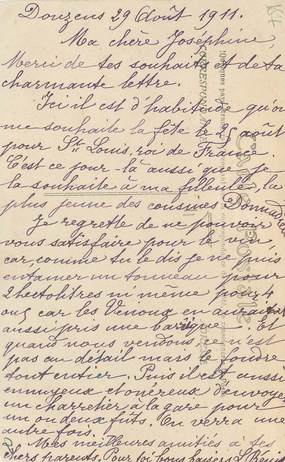 Douzens 29 Août 1911.
Ma chère Joséphine,
Merci de tes souhaits et de ta
charmante lettre.
Ici il est d'habitude qu'on
me souhaite la fête le 25 août
pour St Louis, roi de France.
C'est ce jour là aussi que je
la souhaite à ma filleule, la
plus jeune des cousines
Je regrette de ne pouvoir
vous satisfaire pour le vin,
car, comme tu le dis je ne puis
entamer un tonneau pour
2 hectolitres ni même pour 4
ou 5 car les Venoux en auraient
aussi pris une barrique. Et
quand nous vendons ce n'est
pas au détail mais le foudre
tout entier. Puis il est aussi
ennuyeux et onéreux d'envoyer
un charretier à la gare pour
un ou deux fûts. On verra une
autre fois.
Mes meilleures amitiés à tes
chers parents. Pour toi bons baisers. L.
CORRESPONDANCE